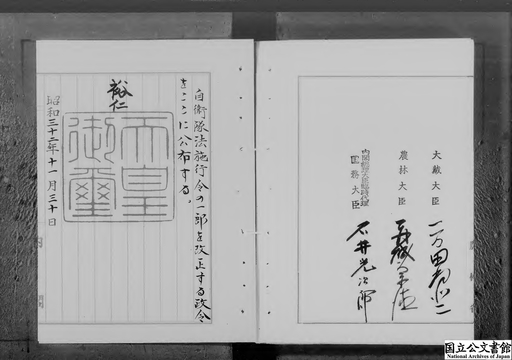 自衛隊法施行令の一部を改正する政令
をここに公布する。
裕仁
天皇
御璽
昭和三十二年十一月三十日
大蔵大臣
一万田尚登
農林大臣
赤城宗徳
内閣総理大臣臨時代理
国務大臣
石井光次郎
国立公文書館
National Archives of Japan